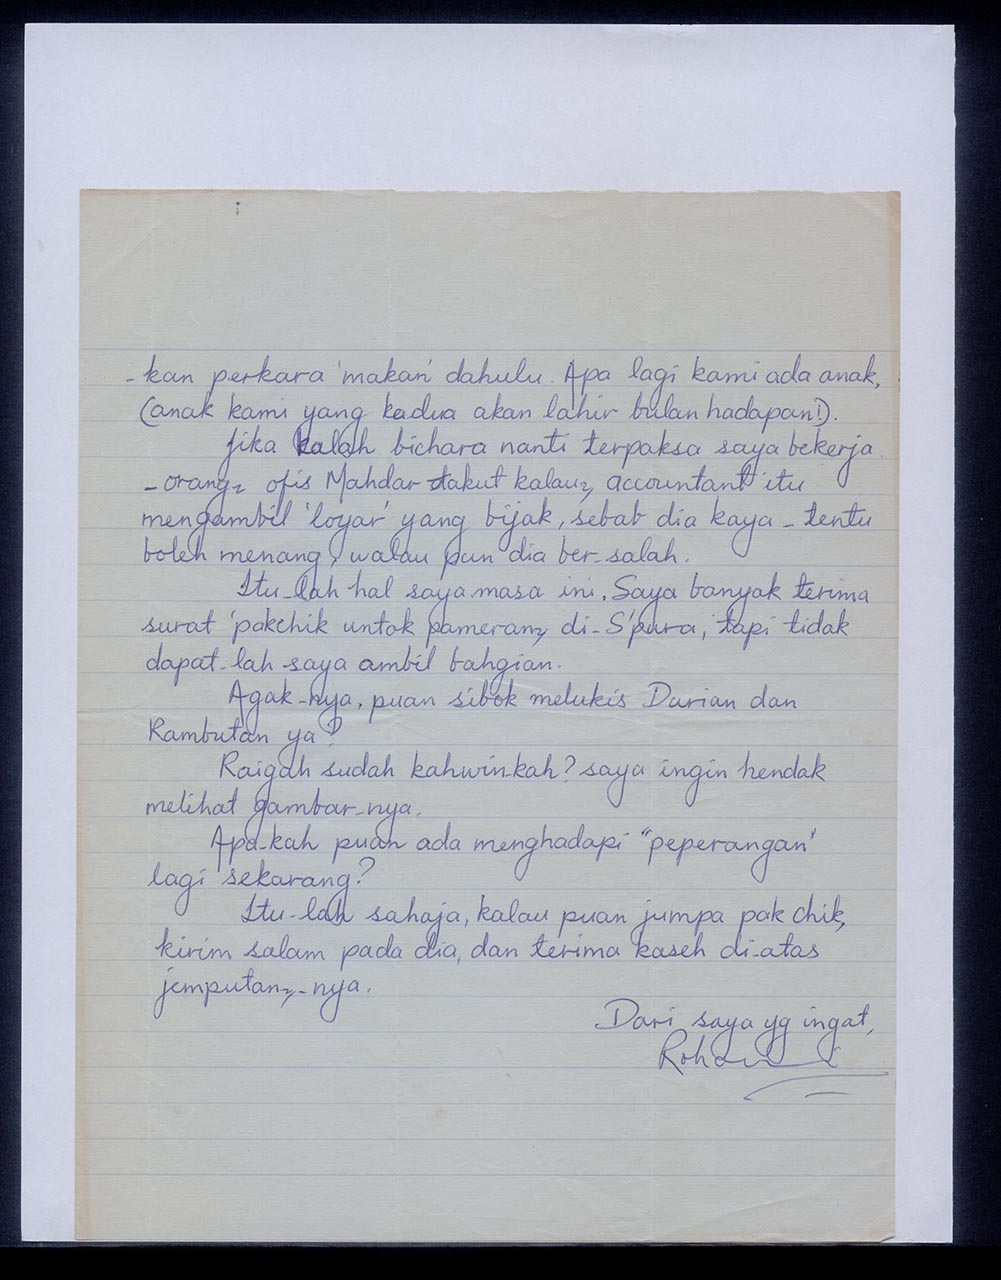 -kan perkara 'makan' dahulu. Apa lagi kami ada anak,
(anak kami yang kedua akan lahir bulan hadapan!).
Jika kalah bichara nanti terpaksa saya bekerja
-orang2 ofis Mahdar takut kalau2 accountant itu
mengambil 'loyar' yang bijak, sebab dia kaya - tentu
boleh menang, walau pun dia ber-salah.
Itu-lah hal saya masa ini. Saya banyak terima
surat 'pakchik untok pameran2 di-S'pura, tapi tidak
dapat-lah saya ambil bahgian.
Agak-nya, puan sibok melukis Durian dan
Rambutan ya?
Raigah sudah kahwin-kah? saya ingin hendak
melihat gambar-nya.
Apa-kah puan ada menghadapi "peperangan'
lagi sekarang?
Itu-lah sahaja, kalau puan jumpa pak chik,
kirim salam pada dia, dan terima kaseh di-atas
jemputan2-nya.
Dari saya yg ingat,
Rohani